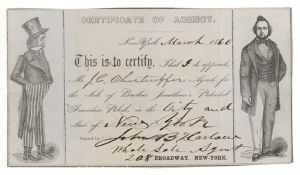 CERTIFICATE OF AGENCY.
New York, March 1860
This is to certify, That I do appoint
Mr J. C. Agent, for
the Sale of Brother Jonathan's Patented
Furniture Polish, in the City and
State of New York
John B. Harlow
Whole Sale Agent
208 BROADWAY, NEW-YORK.